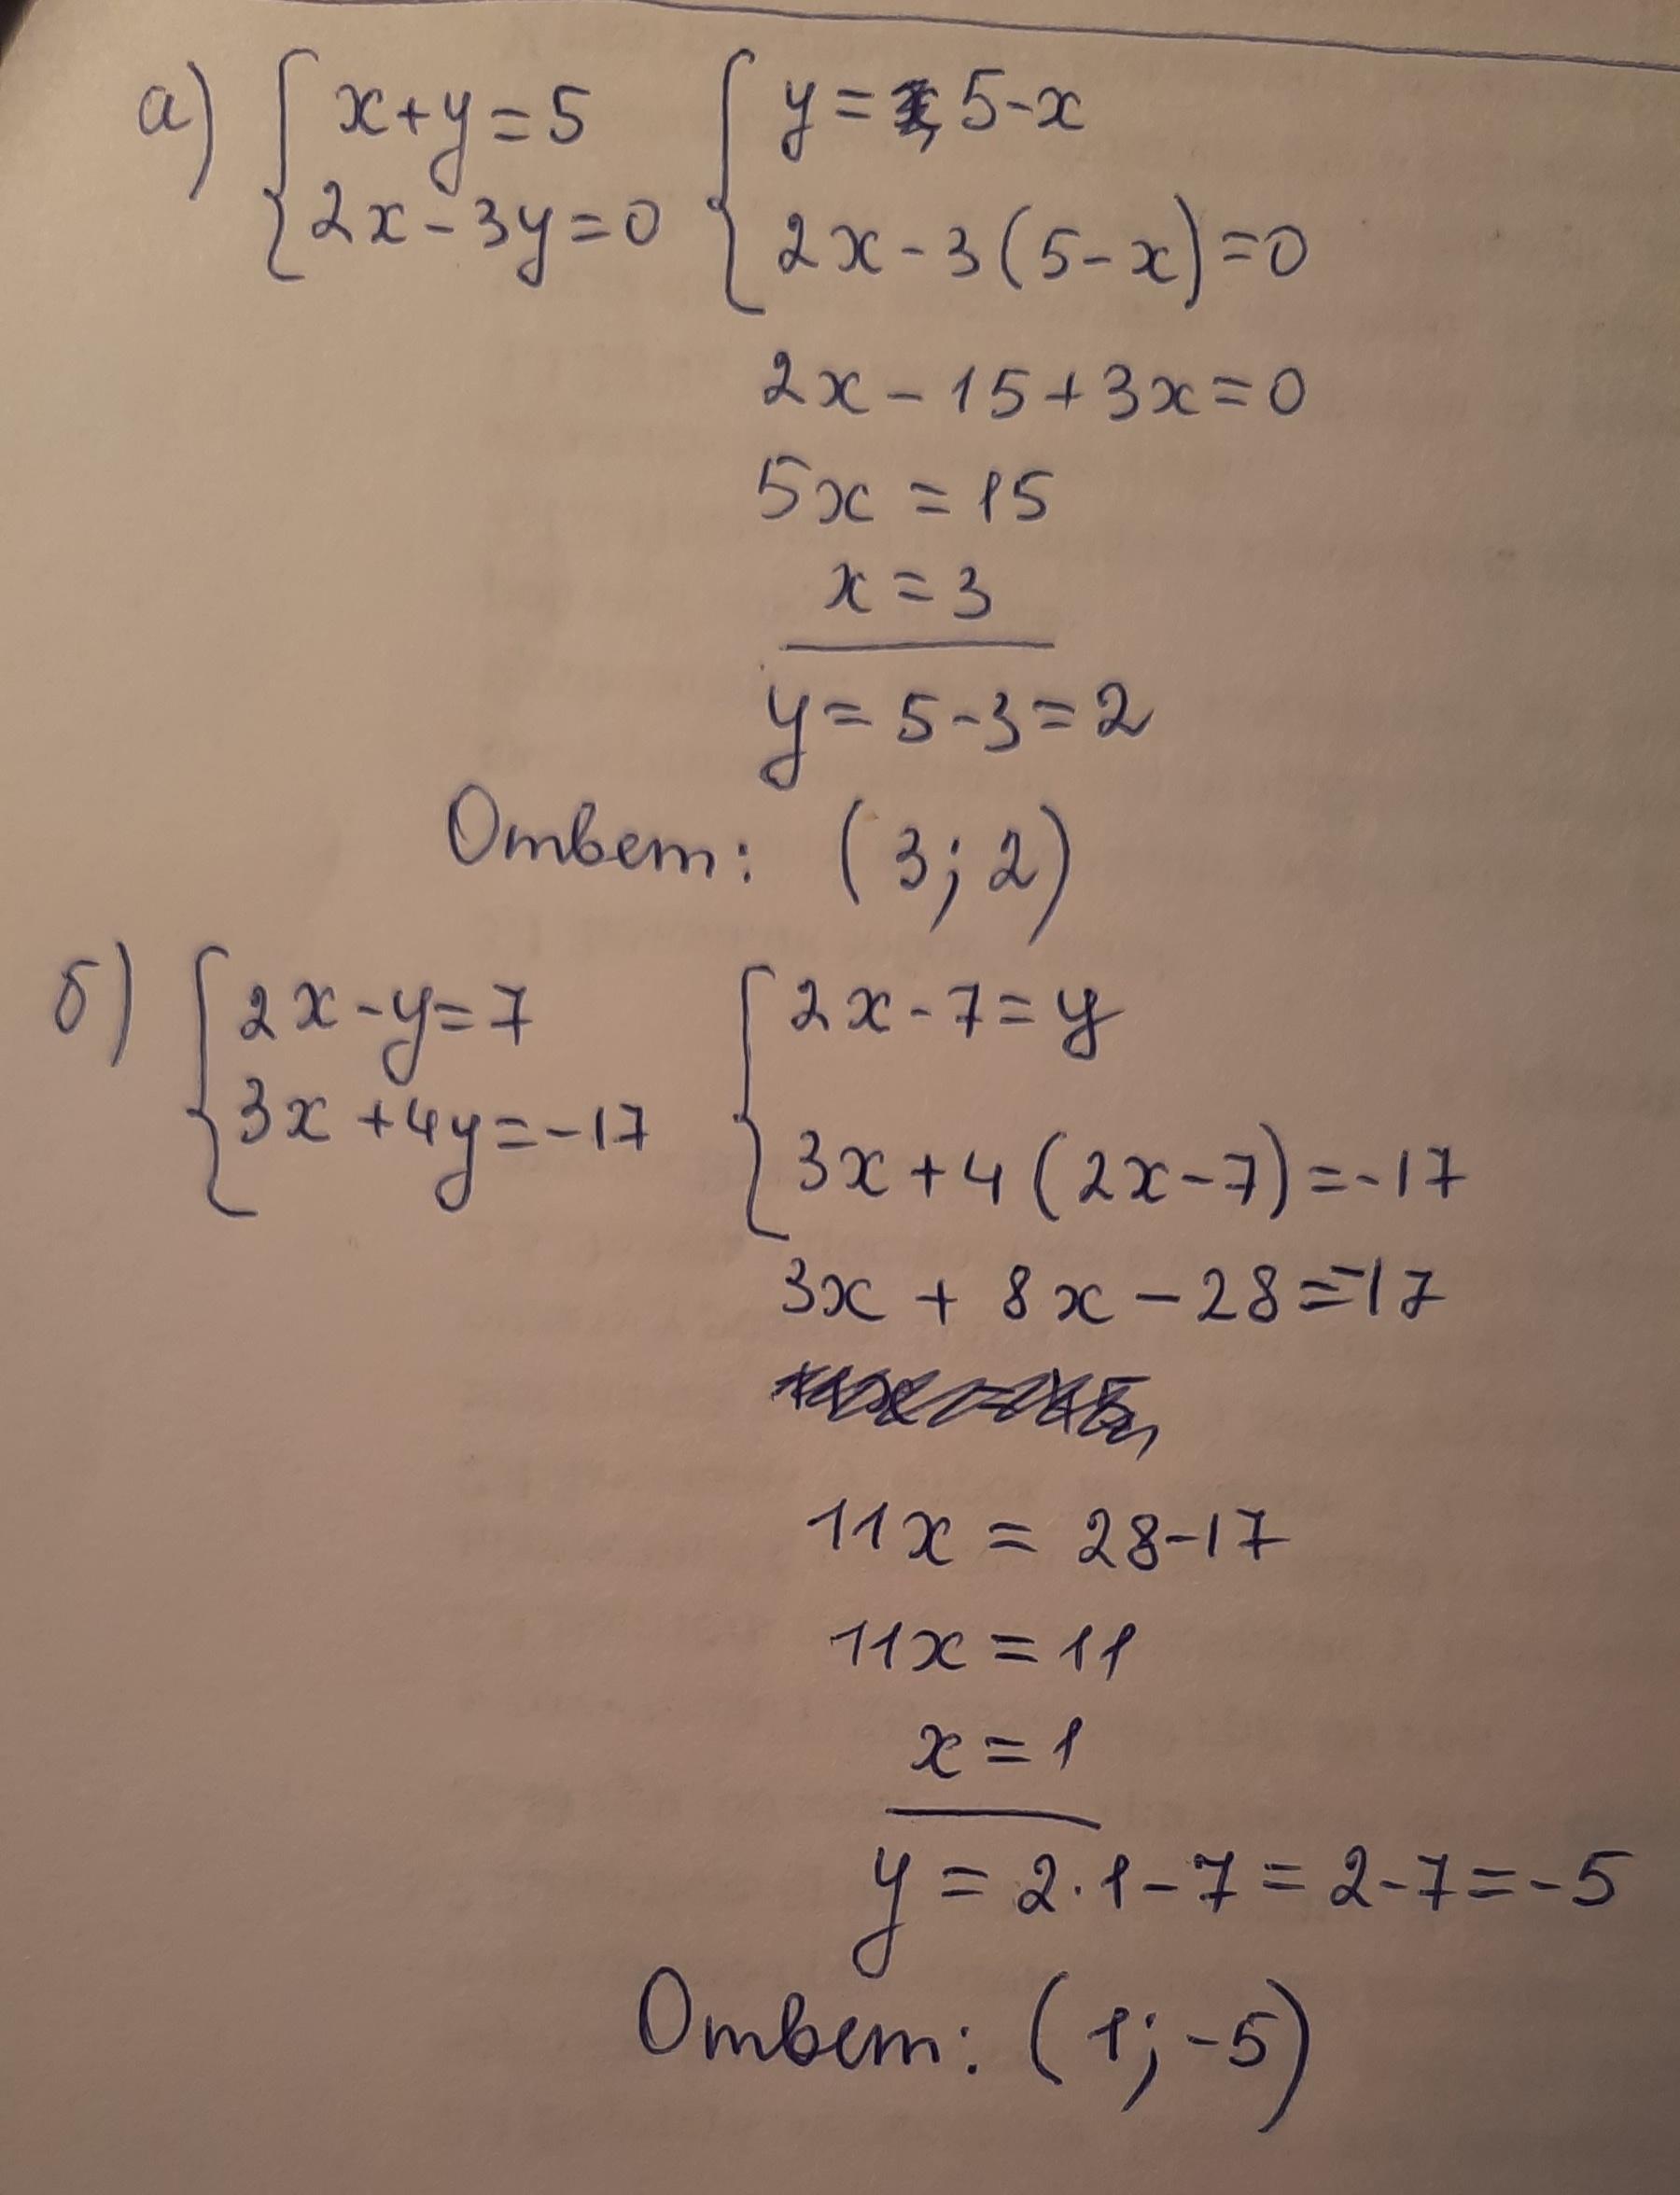 а) { x+y=5 { y= 5-x
{ 2x-3y=0 { 2x-3(5-x)=0
2x-15+3x=0
5x=15
x=3
y=5-3=2
Ответ: (3; 2)
б) { 2x-y=7 { 2x-7=y
{ 3x+4y=-17 { 3x+4(2x-7)=-17
3x+8x-28=-17
11x=28-17
11x=11
x=1
y=2·1-7=2-7=-5
Ответ: (1; -5)